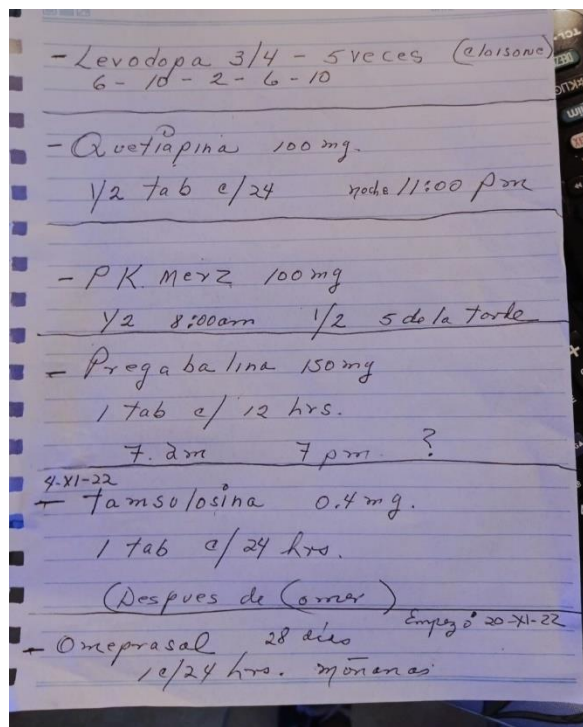 - Levodopa 3/4 - 5 veces (Cloisone)
6 - 10 - 2 - 6 - 10
- Quetiapina 100 mg.
1/2 tab c/24 noche 11:00 pm
- PK Merz 100 mg
1/2 8:00am 1/2 5 de la tarde
- Pregabalina 150 mg
1 tab c/ 12 hrs.
7. am 7 pm ?
4-XI-22
- Tamsulosina 0.4 mg.
1 tab c/ 24 hrs.
(Despues de Comer)
Empezó 20-XI-22
- Omeprasal 28 días
1 c/24 hrs. mañanas